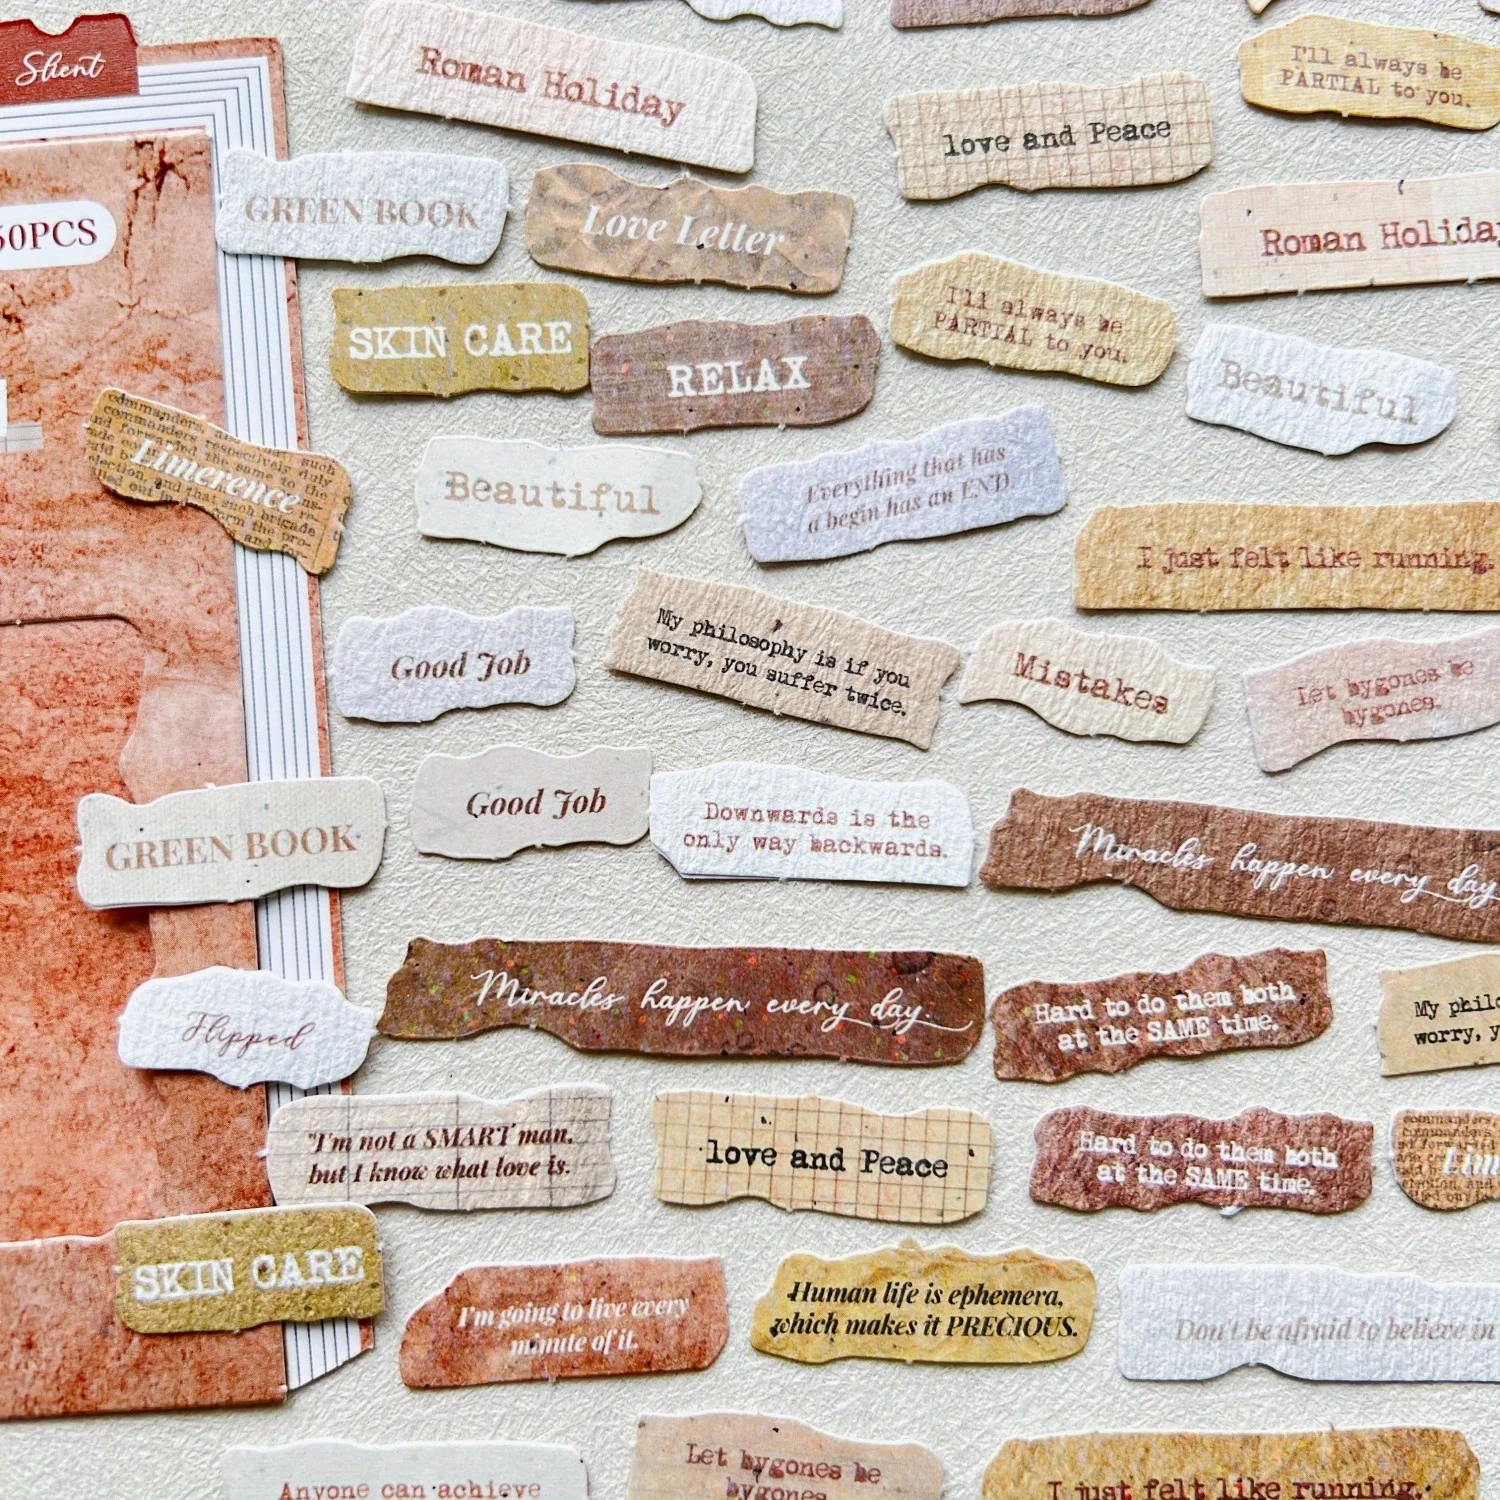 Slient
Roman Holiday
love and Peace
I'll always be
PARTIAL to you.
50PCS
GREEN BOOK
Love Letter
Roman Holiday
SKIN CARE
RELAX
I'll always be
PARTIAL to you.
Beautiful
commanders, such
commanders respectively duly
and forwarded the same to the
Limerence
election, and that such brigade
form the pro-
and for
Beautiful
Everything that has
a begin has an END.
I just felt like running.
Good Job
My philosophy is if you
worry, you suffer twice.
Mistakes
Let bygones be
bygones.
GREEN BOOK
Good Job
Downwards is the
only way backwards.
Miracles happen every day
Miracles happen every day.
Hard to do them both
at the SAME time.
My philo
worry, y
Flipped
"I'm not a SMART man,
but I know what love is.
love and Peace
Hard to do them both
at the SAME time.
commanders,
commanders
Lim
SKIN CARE
I'm going to live every
minute of it.
Human life is ephemera,
which makes it PRECIOUS.
Don't be afraid to believe in
Anyone can achieve
Let bygones be
bygones.
I just felt like running.